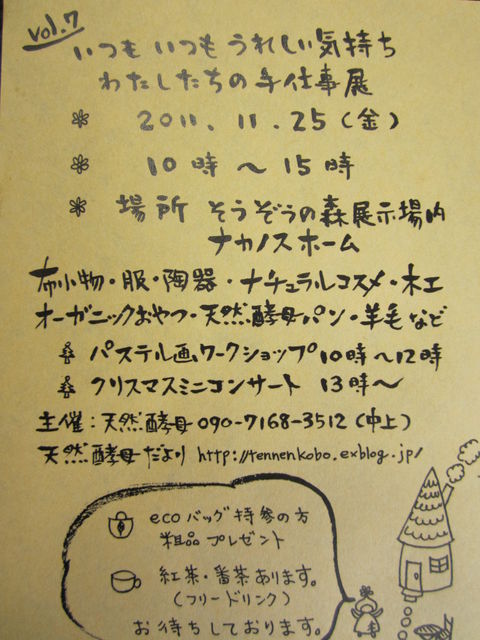 vol.7
いつも いつも うれしい気持ち
わたしたちの手仕事展
2011.11.25(金)
10時〜15時
場所 そうぞうの森展示場内
ナカノスホーム
布小物・服・陶器・ナチュラルコスメ・木工
オーガニックおやつ・天然酵母パン・羊毛など
パステル画ワークショップ10時〜12時
クリスマスミニコンサート 13時〜
主催:天然酵母090-7168-3512(中上)
天然酵母だより http://tennenkobo.exblog.jp/
ecoバッグ持参の方
粗品プレゼント
紅茶・番茶あります。
(フリードリンク)
お待ちしております。